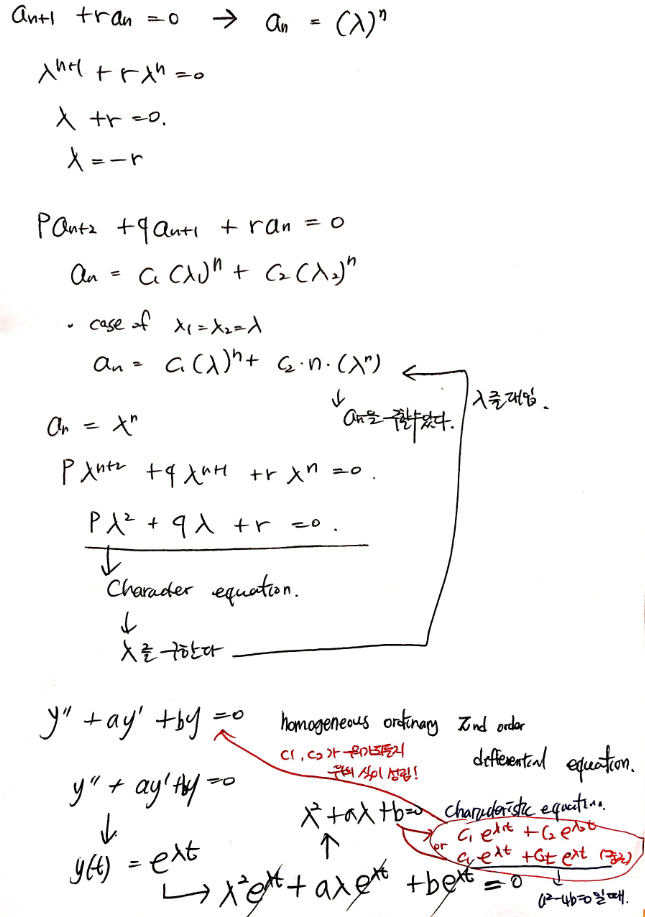 an+1 + ran = 0 → an = (λ)ⁿ
λⁿ⁺¹ + rλⁿ = 0
λ + r = 0.
λ = -r
Pan+2 + qan+1 + ran = 0
an = C₁(λ₁)ⁿ + C₂(λ₂)ⁿ
· case of λ₁=λ₂=λ
an = C₁(λ)ⁿ + C₂·n·(λⁿ)
↓
λ를 대입.
an을 구할 수 있다.
an = λⁿ
Pλⁿ⁺² + qλⁿ⁺¹ + rλⁿ = 0.
Pλ² + qλ + r = 0.
↓
Character equation.
↓
λ를 구한다
y'' + ay' + by = 0 homogeneous ordinary 2nd order
differential equation.
C1, C2가
식이 성립!
y'' + ay' + by = 0
λ² + aλ + b = 0 characteristic equation.
↓
↑
C₁e^λ₁t + C₂e^λ₂t
or C₁e^λt + C₂t e^λt (중근)
y(t) = e^λt
↳ λ²e^λt + aλe^λt + be^λt = 0
↓
a²-4b=0일 때.